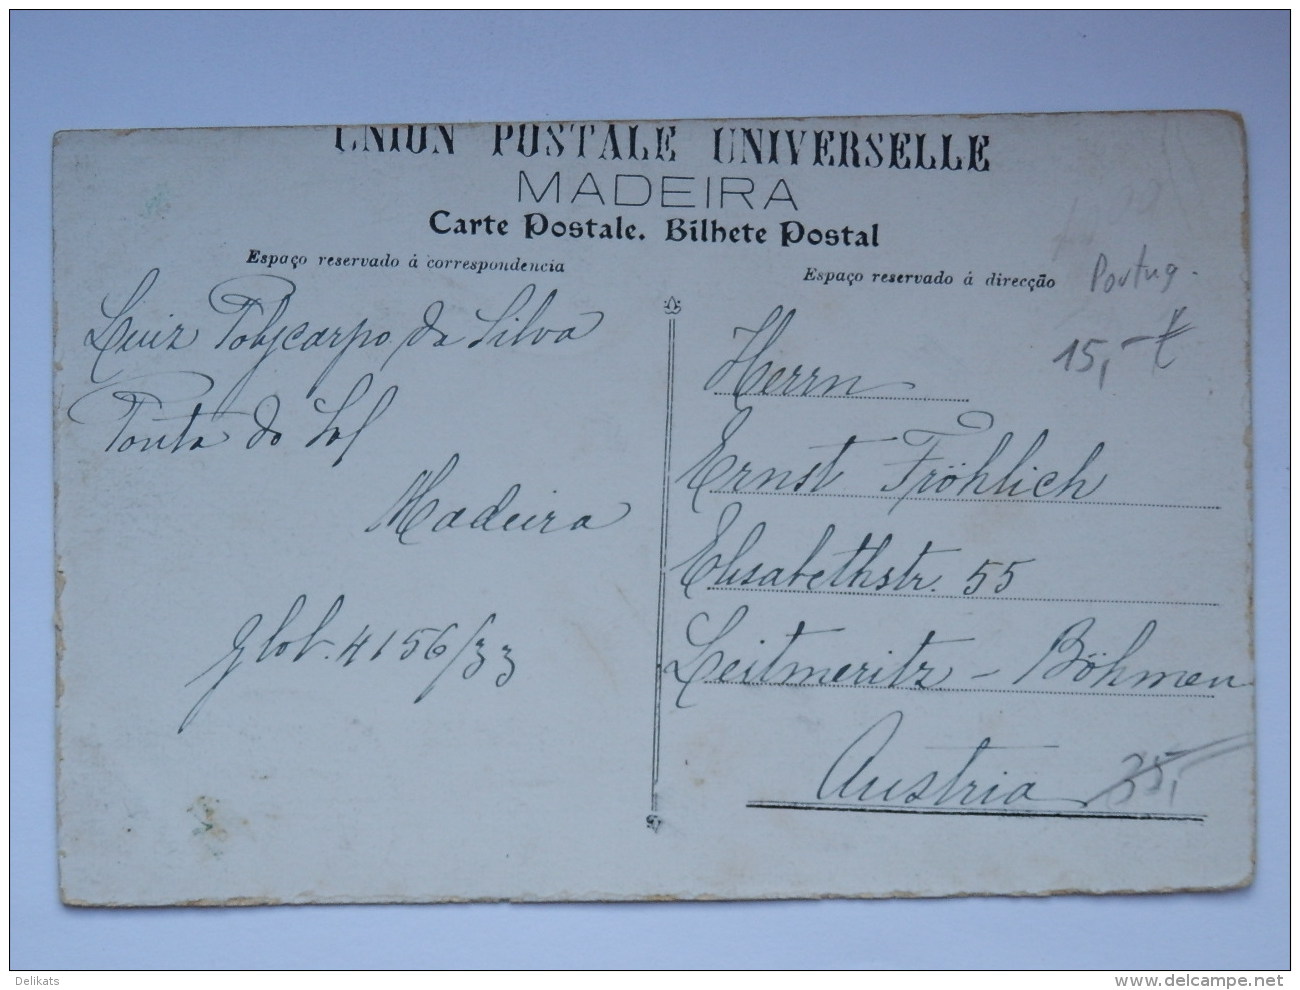 UNION POSTALE UNIVERSELLE
MADEIRA
Carte Postale. Bilhete Postal
Espaço reservado á correspondencia
Luiz Polycarpo da Silva
Ponta do Sol
Madeira
Glob. 4156/33
Espaço reservado á direcção
Portug.
15,-€
Herrn
Ernst Fröhlich
Elisabethstr. 55
Leitmeritz - Böhmen
Austria
35,-
Delikats
www.delcampe.net